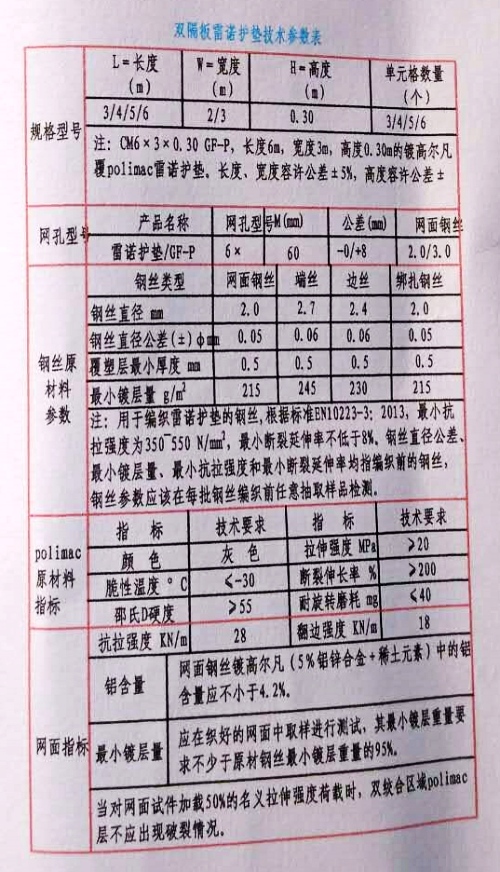 双隔板雷诺护垫技术参数表
规格型号 L=长度(m) W=宽度(m) H=高度(m) 单元格数量(个)
3/4/5/6 2/3 0.30 3/4/5/6
注：CM6×3×0.30 GF-P，长度6m，宽度3m，高度0.30m的镀高尔凡
覆polimac雷诺护垫。长度、宽度容许公差±5%，高度容许公差±
网孔型号 产品名称 网孔型号M(mm) 公差(mm) 网面钢丝
雷诺护垫/GF-P 6× 60 -0/+8 2.0/3.0
钢丝原材料参数 钢丝类型 网面钢丝 端丝 边丝 绑扎钢丝
钢丝直径 mm 2.0 2.7 2.4 2.0
钢丝直径公差(±)φmm 0.05 0.06 0.06 0.05
覆塑层最小厚度 mm 0.5 0.5 0.5 0.5
最小镀层量 g/m² 215 245 230 215
注：用于编织雷诺护垫的钢丝,根据标准EN10223-3：2013，最小抗
拉强度为350~550 N/mm²，最小断裂延伸率不低于8%。钢丝直径公差、
最小镀层量、最小抗拉强度和最小断裂延伸率均指编织前的钢丝，
钢丝参数应该在每批钢丝编织前任意抽取样品检测。
polimac原材料指标 指 标 技术要求 指 标 技术要求
颜 色 灰 色 拉伸强度 MPa ≥20
脆性温度 °C ≤-30 断裂伸长率 % ≥200
邵氏D硬度 ≥55 耐旋转磨耗 mg ≤40
网面指标 抗拉强度 KN/m 28 翻边强度 KN/m 18
铝含量 网面钢丝镀高尔凡（5%铝锌合金+稀土元素）中的铝
含量应不小于4.2%。
最小镀层量 应在织好的网面中取样进行测试，其最小镀层重量要
求不少于原材钢丝最小镀层重量的95%。
当对网面试件加载50%的名义拉伸强度荷载时，双绞合区域polimac
层不应出现破裂情况。